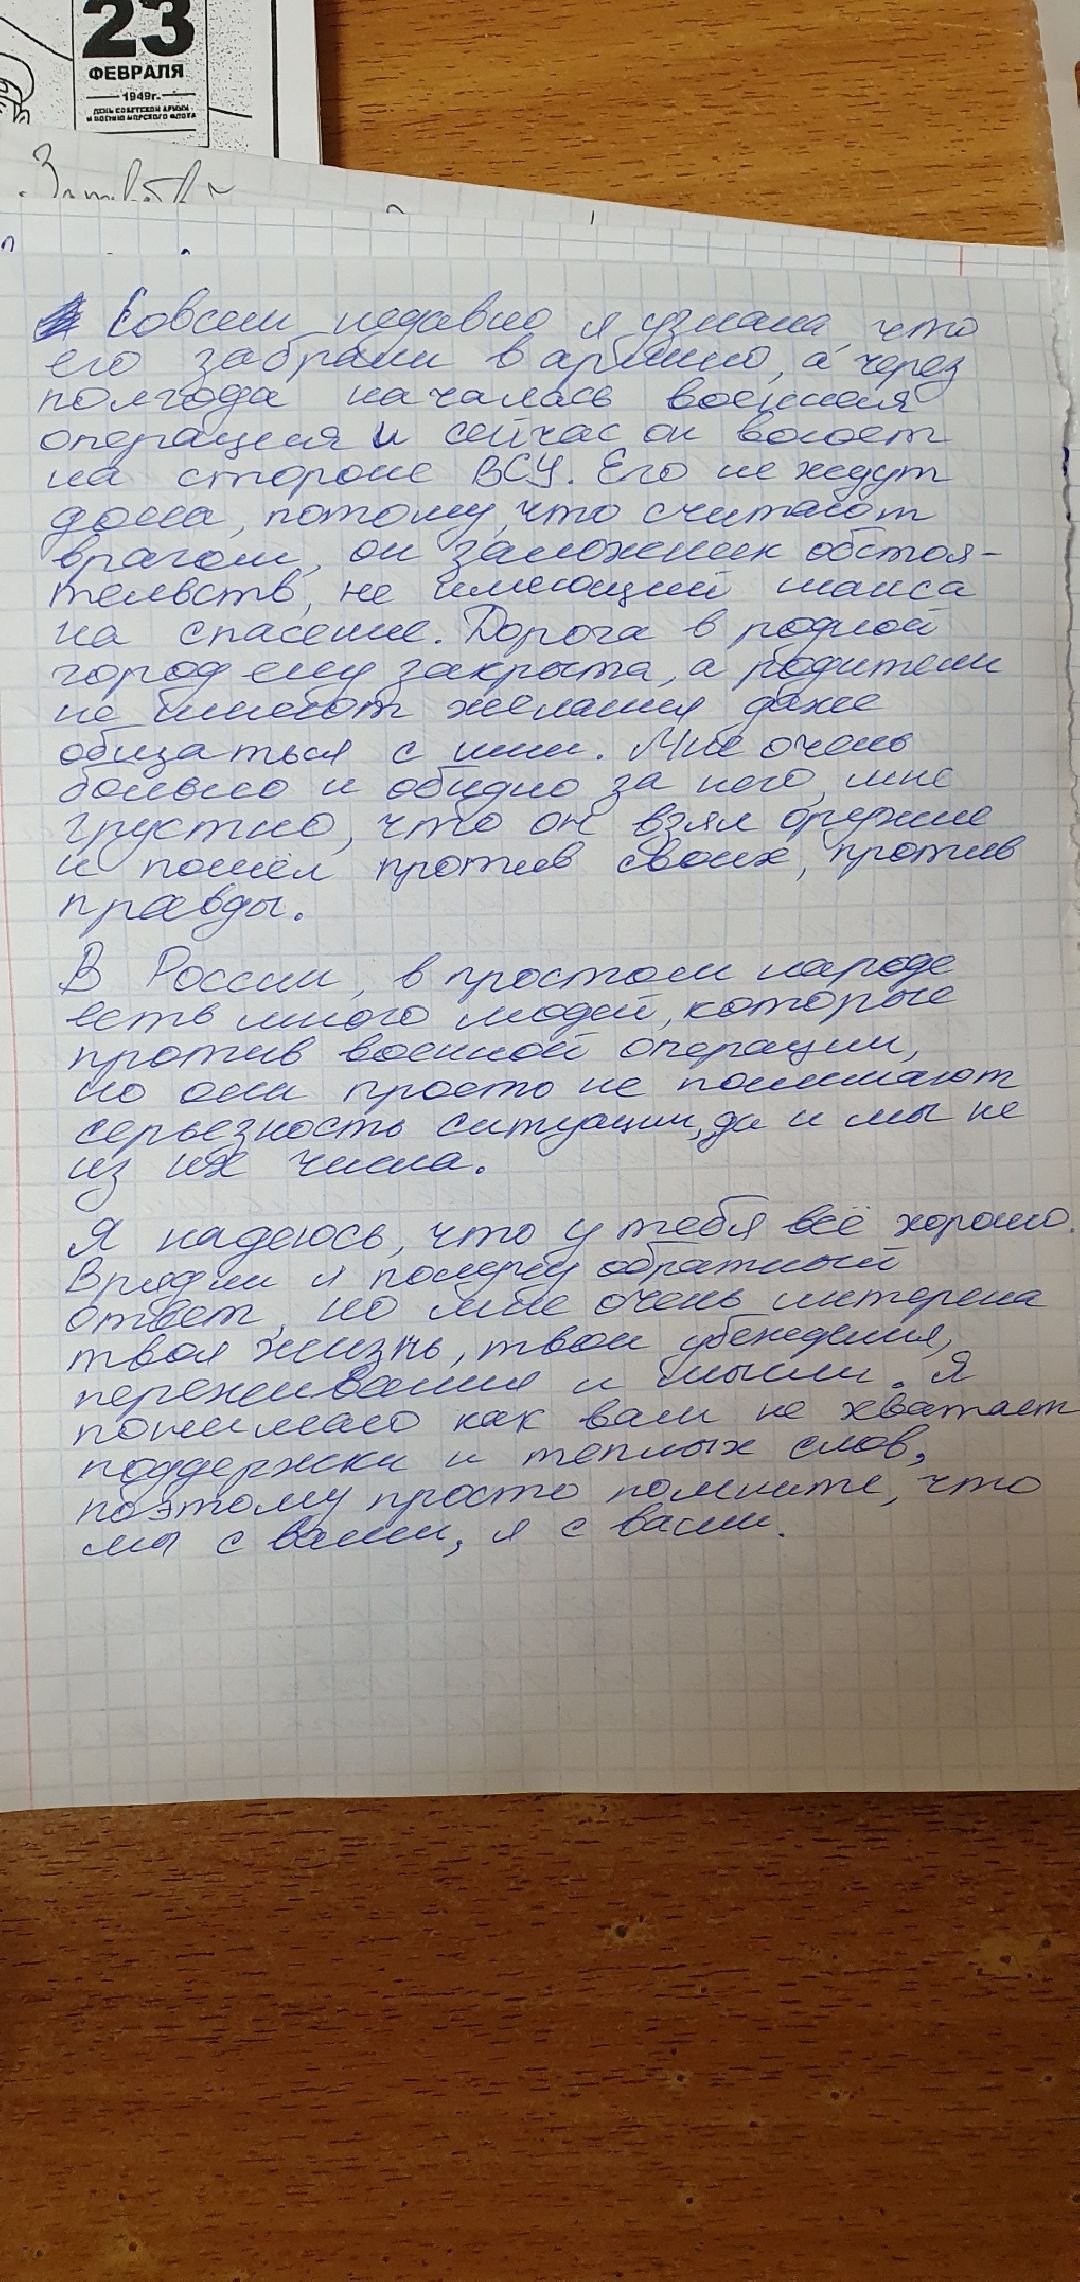 23
ФЕВРАЛЯ
1949г.
ДЕНЬ СОВЕТСКОЙ АРМИИ
И ВОЕННО МОРСКОГО ФЛОТА
Совсем недавно я узнала, что
его забрали в армию, а через
полгода началась военная
операция и сейчас он воюет
на стороне ВСУ. Его не ждут
дома, потому, что считают
врагом, он заложник обстоя-
тельств, не имеющий шанса
на спасение. Дорога в родной
город ему закрыта, а родители
не имеют желания даже
общаться с ним. Мне очень
больно и обидно за него, мне
грустно, что он взял оружие
и пошёл против своих, против
правды.
В России, в простом народе
есть много людей, которые
против военной операции,
но они просто не понимают
серьезность ситуации, да и мы не
из их числа.
Я надеюсь, что у тебя всё хорошо.
Врядли я получу обратный
ответ, но мне очень интересна
твоя жизнь, твои убеждения,
переживания и мысли. Я
понимаю как вам не хватает
поддержки и теплых слов,
поэтому просто помните, что
мы с вами, я с вами.